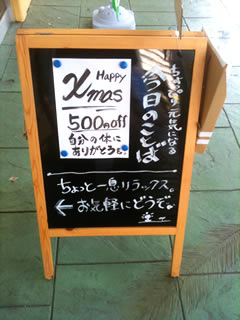 ちょっぴり元気になる
今日のことば
Happy
Xmas
500円off
自分の体に
ありがとうを。
ちょっと一息リラックス。
← お気軽にどうぞ。